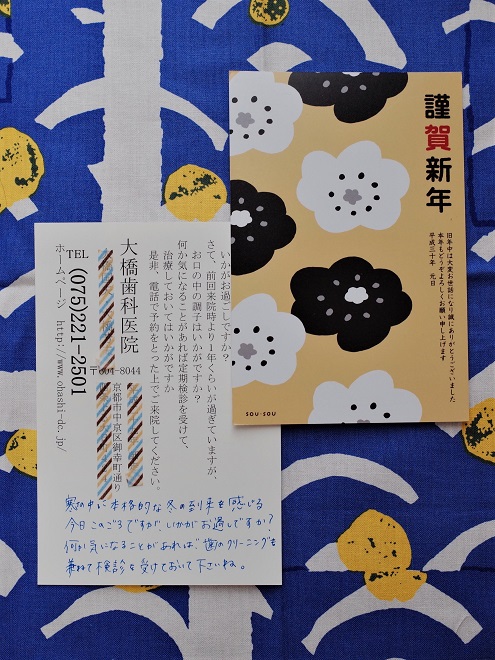 謹賀新年
旧年中は大変お世話になり誠にありがとうございました
本年もどうぞよろしくお願い申し上げます
平成三十年 元旦
SOU・SOU
いかがお過ごしですか？
さて、前回来院時より１年くらいが過ぎていますが、
お口の中の調子はいかがですか？
何か気になることがあれば定期検診を受けて、
治療しておいてはいかがですか
是非、電話で予約をとった上でご来院してください。
大橋歯科医院
〒604-8044
京都市中京区御幸町通り
TEL (075)221-2501
ホームページ http://www.ohashi-dc.jp/
寒さの中に本格的な冬の到来を感じる
今日このごろですが、いかがお過しですか？
何か気になることがあれば、歯のクリーニングも
兼ねて検診を受けておいて下さいね。